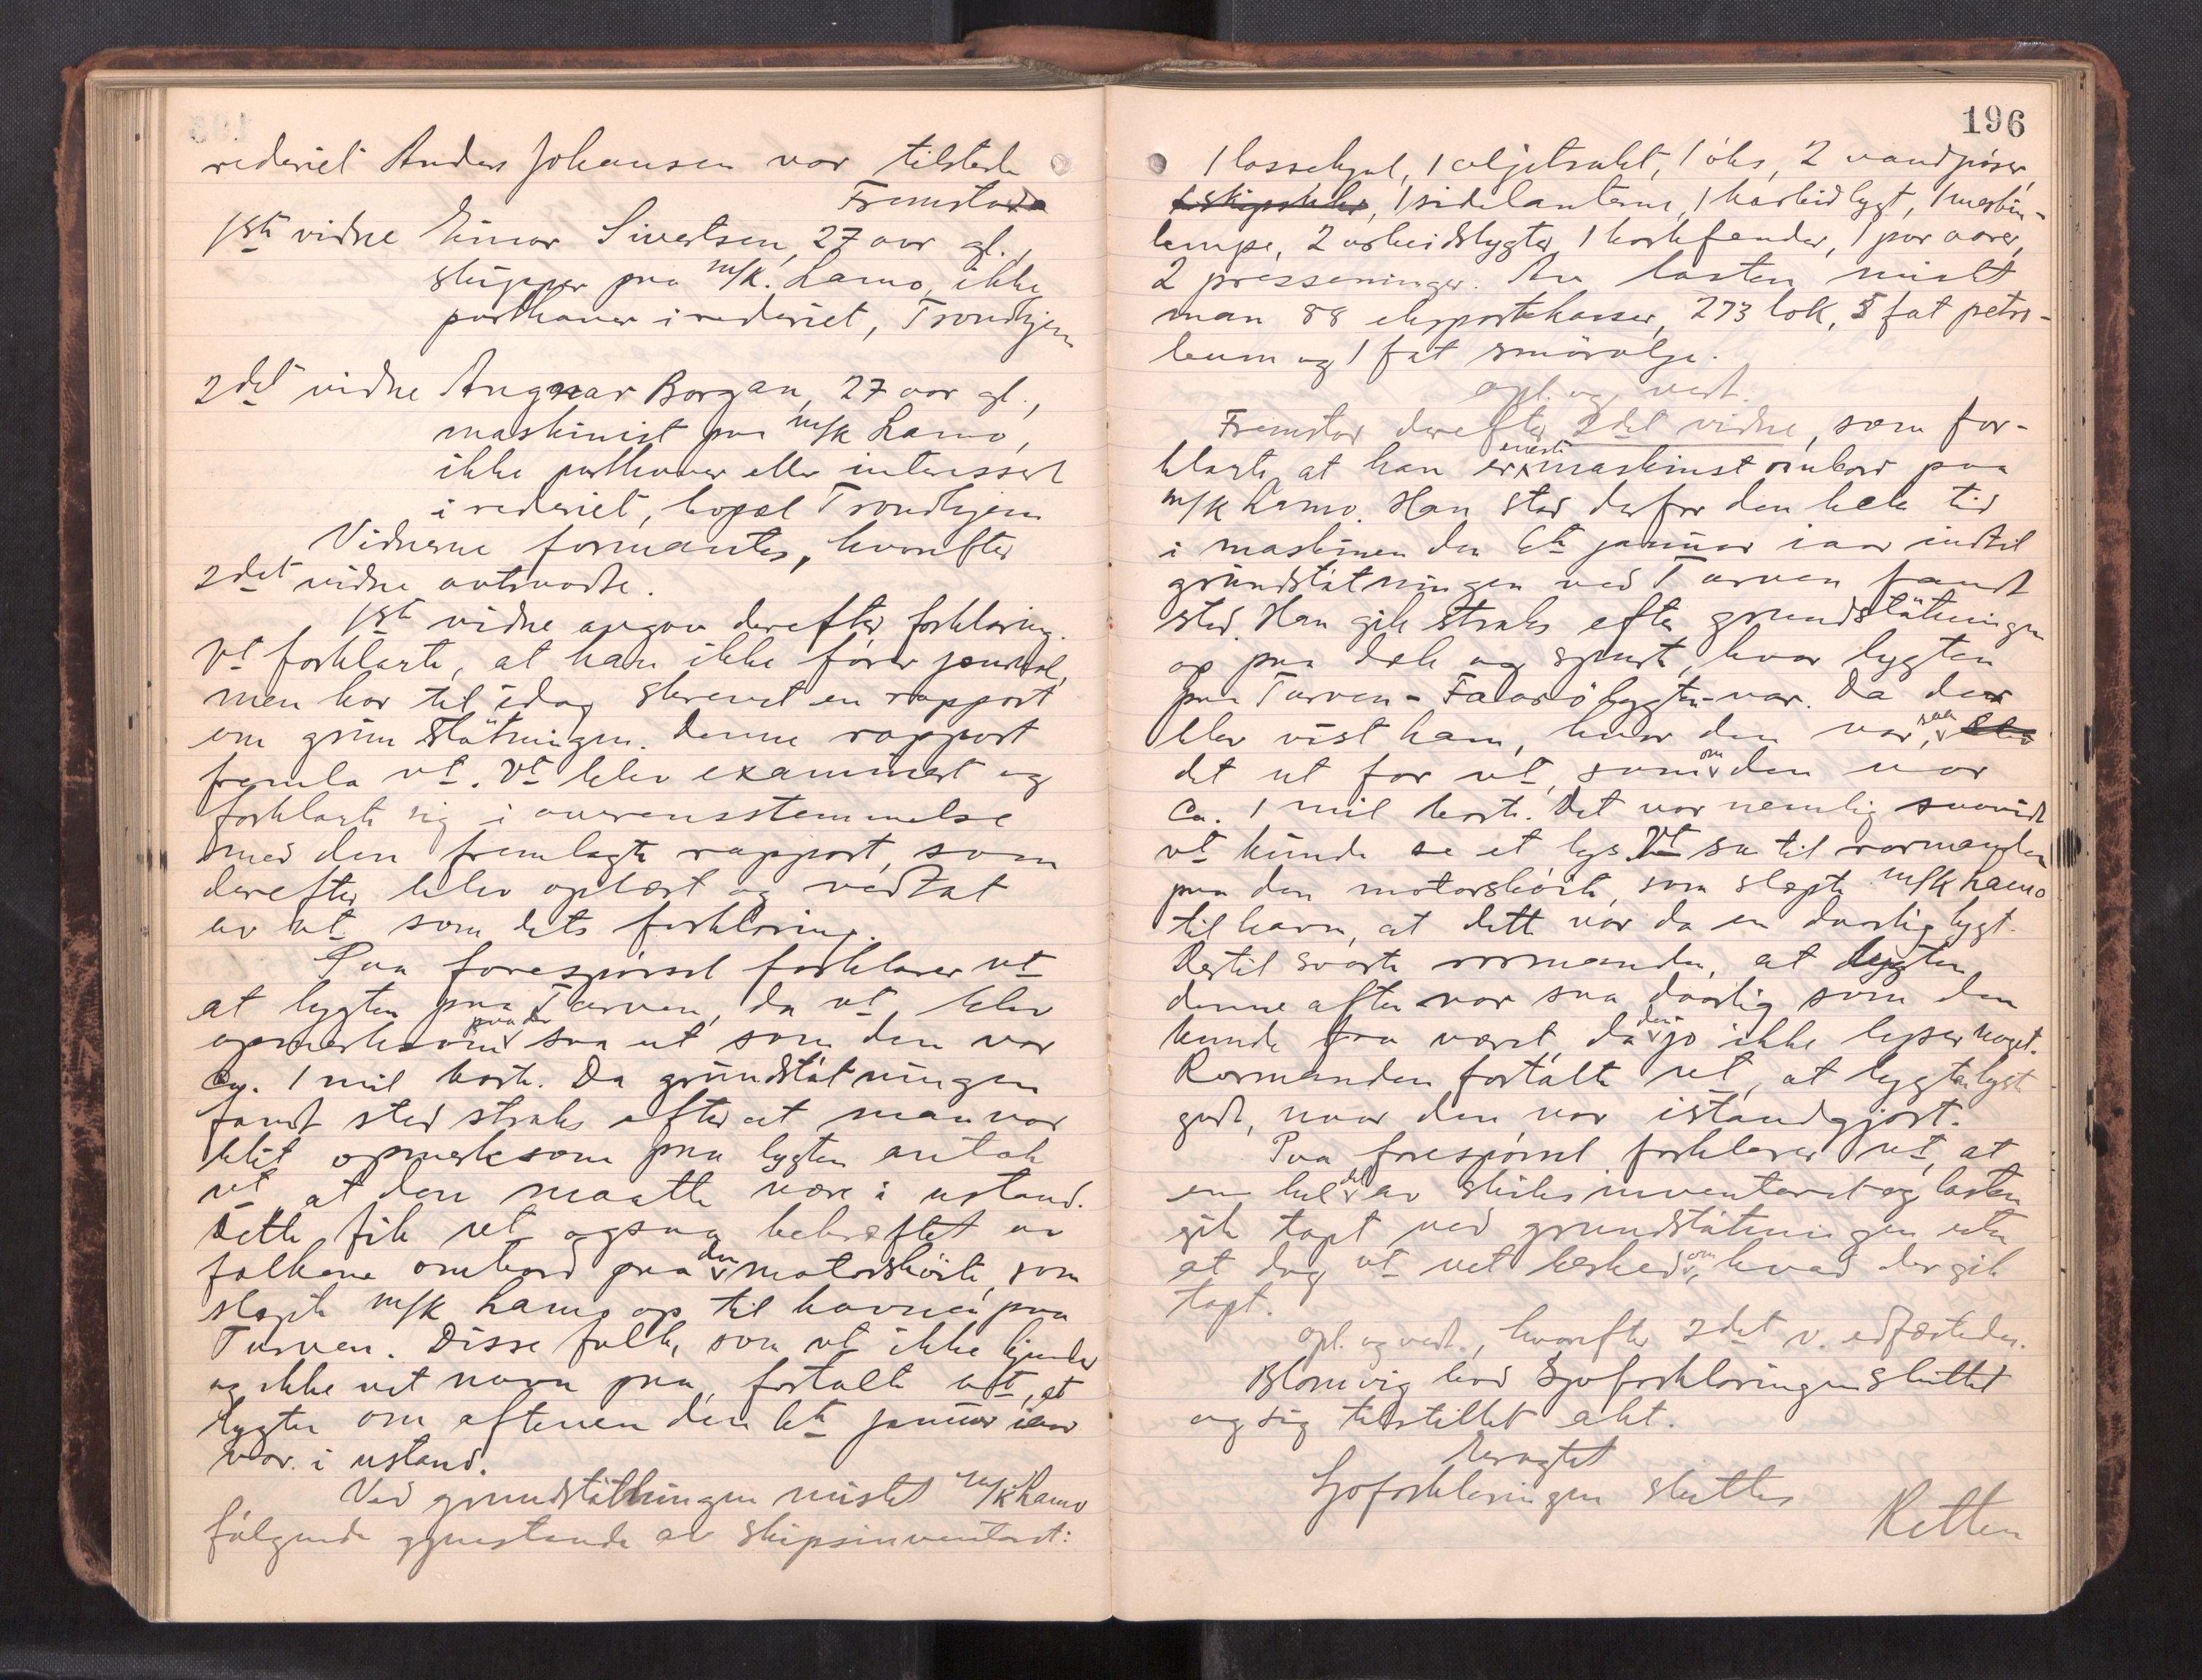 rederiet Anders Johansen var tilstede
Fremstod
1ste vidne Einar Sivertsen, 27 aar gl.,
skipper paa m/k. Lamo, ikke
parthaver i rederiet, Trondhjem
2det vidne Angmar Borgan, 27 aar gl.,
maskinist paa m/k Lamo,
ikke parthaver eller interessert
i rederiet, bopæl Trondhjem
Vidnerne formantes, hvorefter
2det vidne avtraadte.
1ste vidne avgav derefter forklaring.
Vt forklarte, at han ikke fører journal,
men har til idag skrevet en rapport
om grundstøtningen. Denne rapport
fremla vt. Vt blev examinert og
forklarte sig i overensstemmelse
med den fremlagte rapport, som
derefter blev oplæst og vedtat
av vt som dets forklaring.
Paa forespørsel forklarer vt
at lygten paa Tarven, da vt blev
opmerksom paa den saa ut som den var
ca. 1 mil borte. Da grundstøtningen
fandt sted straks efter at man var
blit opmerksom paa lygten antok
vt at den maatte være i ustand.
Dette fik vt ogsaa bekræftet av
folkene ombord paa den motorskøite, som
slæpte m/k Lamo op til havnen paa
Tarven. Disse folk, som vt ikke kjender
og ikke vet navn paa, fortalte vt, at
lygten om aftenen den 6te januar iaar
var i ustand.
Ved grundstøtningen mistet m/k Lamo
følgende gjenstande av skipsinventaret:
196
1 lossehjul, 1 oljetrakt, 1 øks, 2 vandpøser,
1 sidelanterne, 1 karbidlygt, 1 maskin-
lampe, 2 arbeidslygter, 1 korkfender, 1 par aarer,
2 presseninger. Av lasten mistet
man 88 eksportkasser, 273 lok, 5 fat petro-
leum og 1 fat smørolje.
opl. og vedt.
Fremstod derefter 2det vidne, som for-
klarte at han er eneste maskinist ombord paa
m/k Lamo. Han stod derfor den hele tid
i maskinen den 6te januar iaar indtil
grundstøtningen ved Tarven fandt
sted. Han gik straks efter grundstøtningen
op paa dæk og spurte, hvor lygten
paa Tarven - Faarølygten - var. Da der
blev vist ham, hvor den var, saa
det ut for vt, som om den var
ca. 1 mil borte. Det var nemlig saavidt
vt kunde se et lys. Vt sa til rormanden
paa den motorskøite, som slæpte m/k Lamo
til havn, at dette var da en daarlig lygt.
Dertil svarte rormanden, at lygten
denne aften var saa daarlig som den
kunde faa været da den jo ikke lyser noget.
Rormanden fortalte vt, at lygten lyste
godt, naar den var istandgjort.
Paa forespørsel forklarer vt, at
en hel del av skibsinventaret og lasten
gik tapt ved grundstøtningen uten
at dog vt vet beskjed om, hvad der gik
tapt.
opl. og vedt., hvorefter 2det v. edfæstedes.
Blomvig bad Sjøforklaringen sluttet
og sig tilstillet akt.
Berogtet
Sjøforklaringen sluttes
Retten